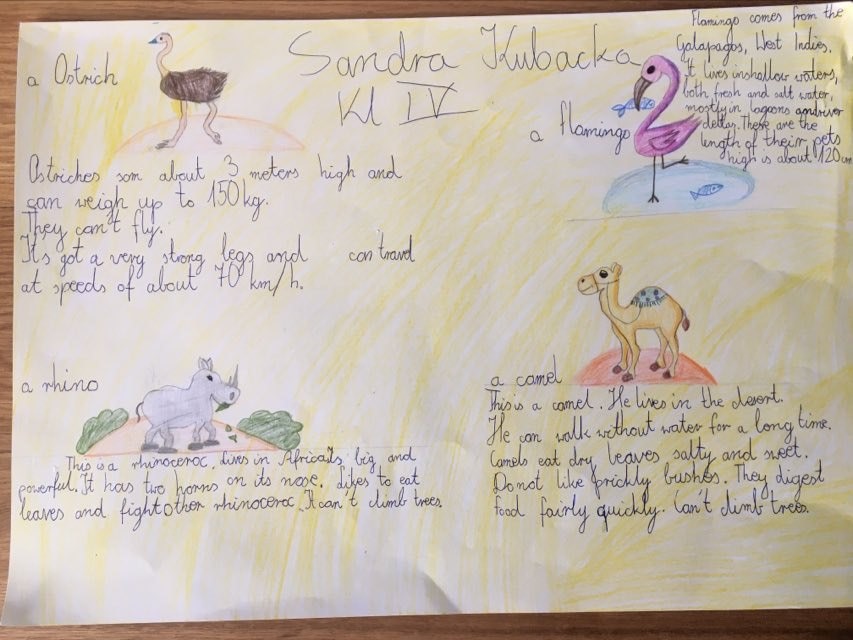 Sandra Kubacka
Kl IV
a Ostrich
Ostriches som about 3 meters high and
can weigh up to 150 kg.
They can't fly.
It's got a very strong legs and can travel
at speeds of about 70 km/h.
a flamingo
Flamingo comes from the
Galapagos, West Indies.
It lives inshallow waters,
both fresh and salt water,
mostly in lagoons andriver
deltas. These are the
length of their pets
high is about 120 cm
a rhino
This is a rhinoceroc, lives in Africa. It's big and
powerful. It has two horns on its nose. Likes to eat
leaves and fight other rhinoceroc. It can't climb trees.
a camel
This is a camel. He lives in the desert.
He can walk without water for a long time.
Camels eat dry leaves salty and sweet.
Do not like prickly bushes. They digest
food fairly quickly. Can't climb trees.